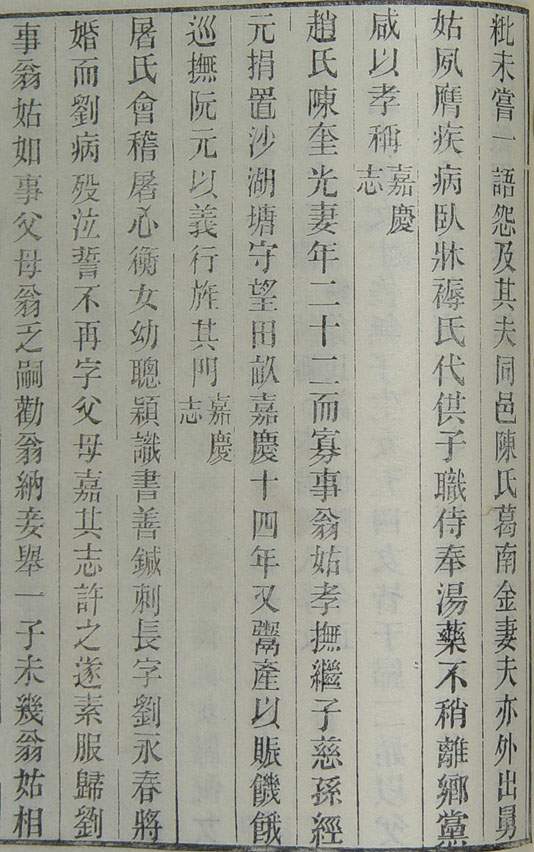 紕未嘗一語怨及其夫同邑陳氏葛南金妻夫亦外出舅
姑夙膺疾病臥牀褥氏代供子職侍奉湯藥不稍離鄉黨
咸以孝稱嘉慶志
趙氏陳奎光妻年二十二而寡事翁姑孝撫繼子慈孫經
元捐置沙湖塘守望田畝嘉慶十四年又鬻產以賑饑餓
巡撫阮元以義行旌其門嘉慶志
屠氏會稽屠心衡女幼聰穎識書善鍼刺長字劉永春將
婚而劉病歿泣誓不再字父母嘉其志許之遂素服歸劉
事翁姑如事父母翁乏嗣勸翁納妾舉一子未幾翁姑相